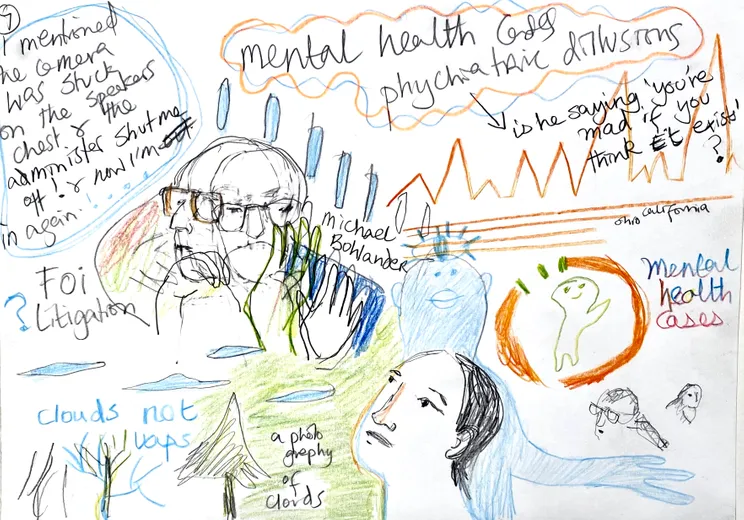 9
I mentioned
the camera
was stuck
on the speakers
chest & the
administer shut me
off! & now I'm
in again!.....
mental health
phychiatric dillusions
is he saying, 'you're
mad if you
think Et exists'
?
michael
Bohlander
ohio california
Foi
? Litigation
mental
health
cases
clouds not
a photo
graphy
of
clouds